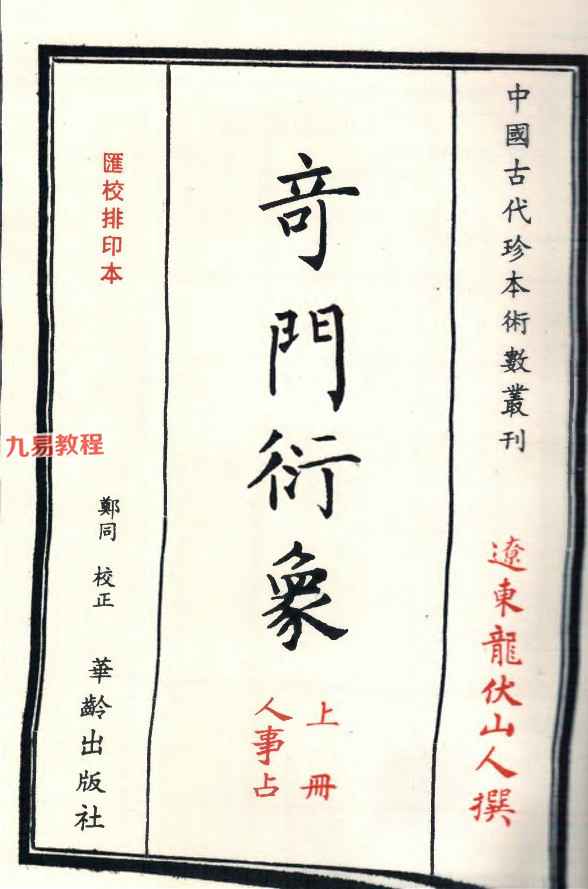 中國古代珍本術數叢刊
遼東龍伏山人撰
奇門衍象
上冊
人事占
匯校排印本
九易教程
鄭同 校正
華齡出版社